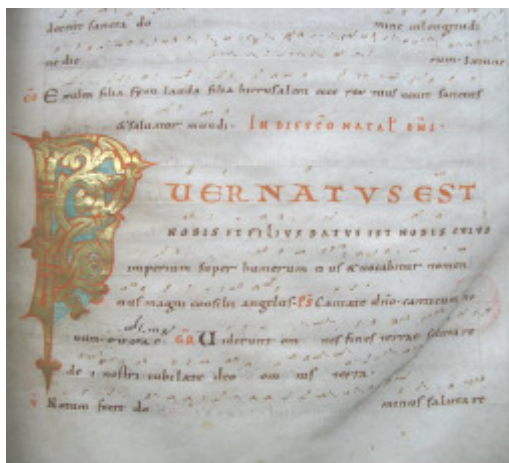 decent sancta do mine in longitudi
ne die rum
CO Exulta filia syon lauda filia hierusalem ecce rex tuus venit sanctus
& saluator mundi. IN DIE SCO NATAL DNI.
PUER NATVS EST
NOBIS ET FILIVS DATVS EST NOBIS CVIVS
imperium super humerum eius & uocabitur nomen
eius magni consilii angelus. PS Cantate dno canticum no
uum. GR Uiderunt om nes fines terrae saluta re
de i nostri iubilate deo om nis terra.
V Notum fecit do minus saluta re